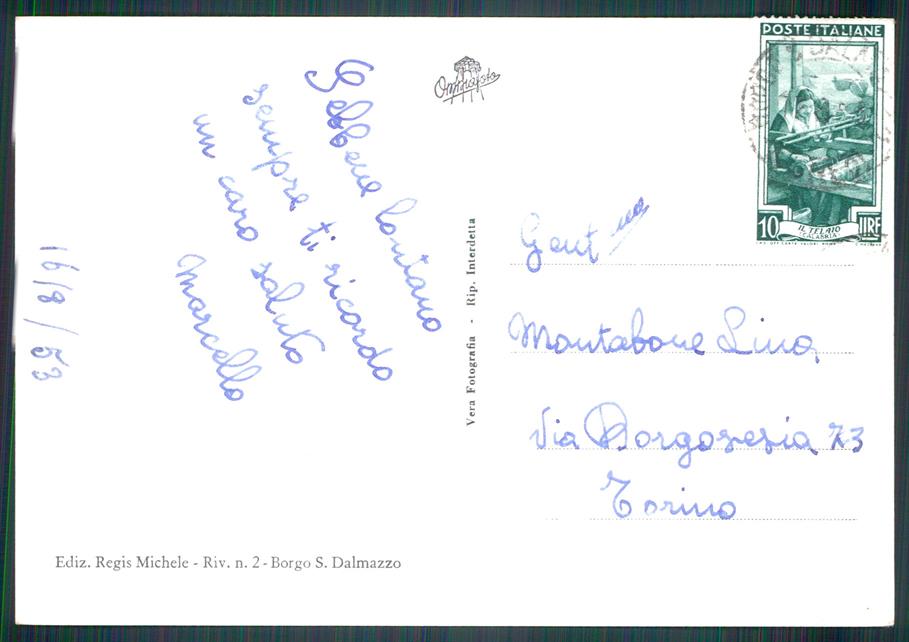 Sebbene lontano
sempre ti ricordo
un caro saluto
Marcello
16/8/53
Vera Fotografia - Rip. Interdetta
POSTE ITALIANE
10 LIRE
IL TELAIO
(CALABRIA)
Gent ma
Montabone Lina
Via Borgosesia 73
Torino
Ediz. Regis Michele - Riv. n. 2 - Borgo S. Dalmazzo